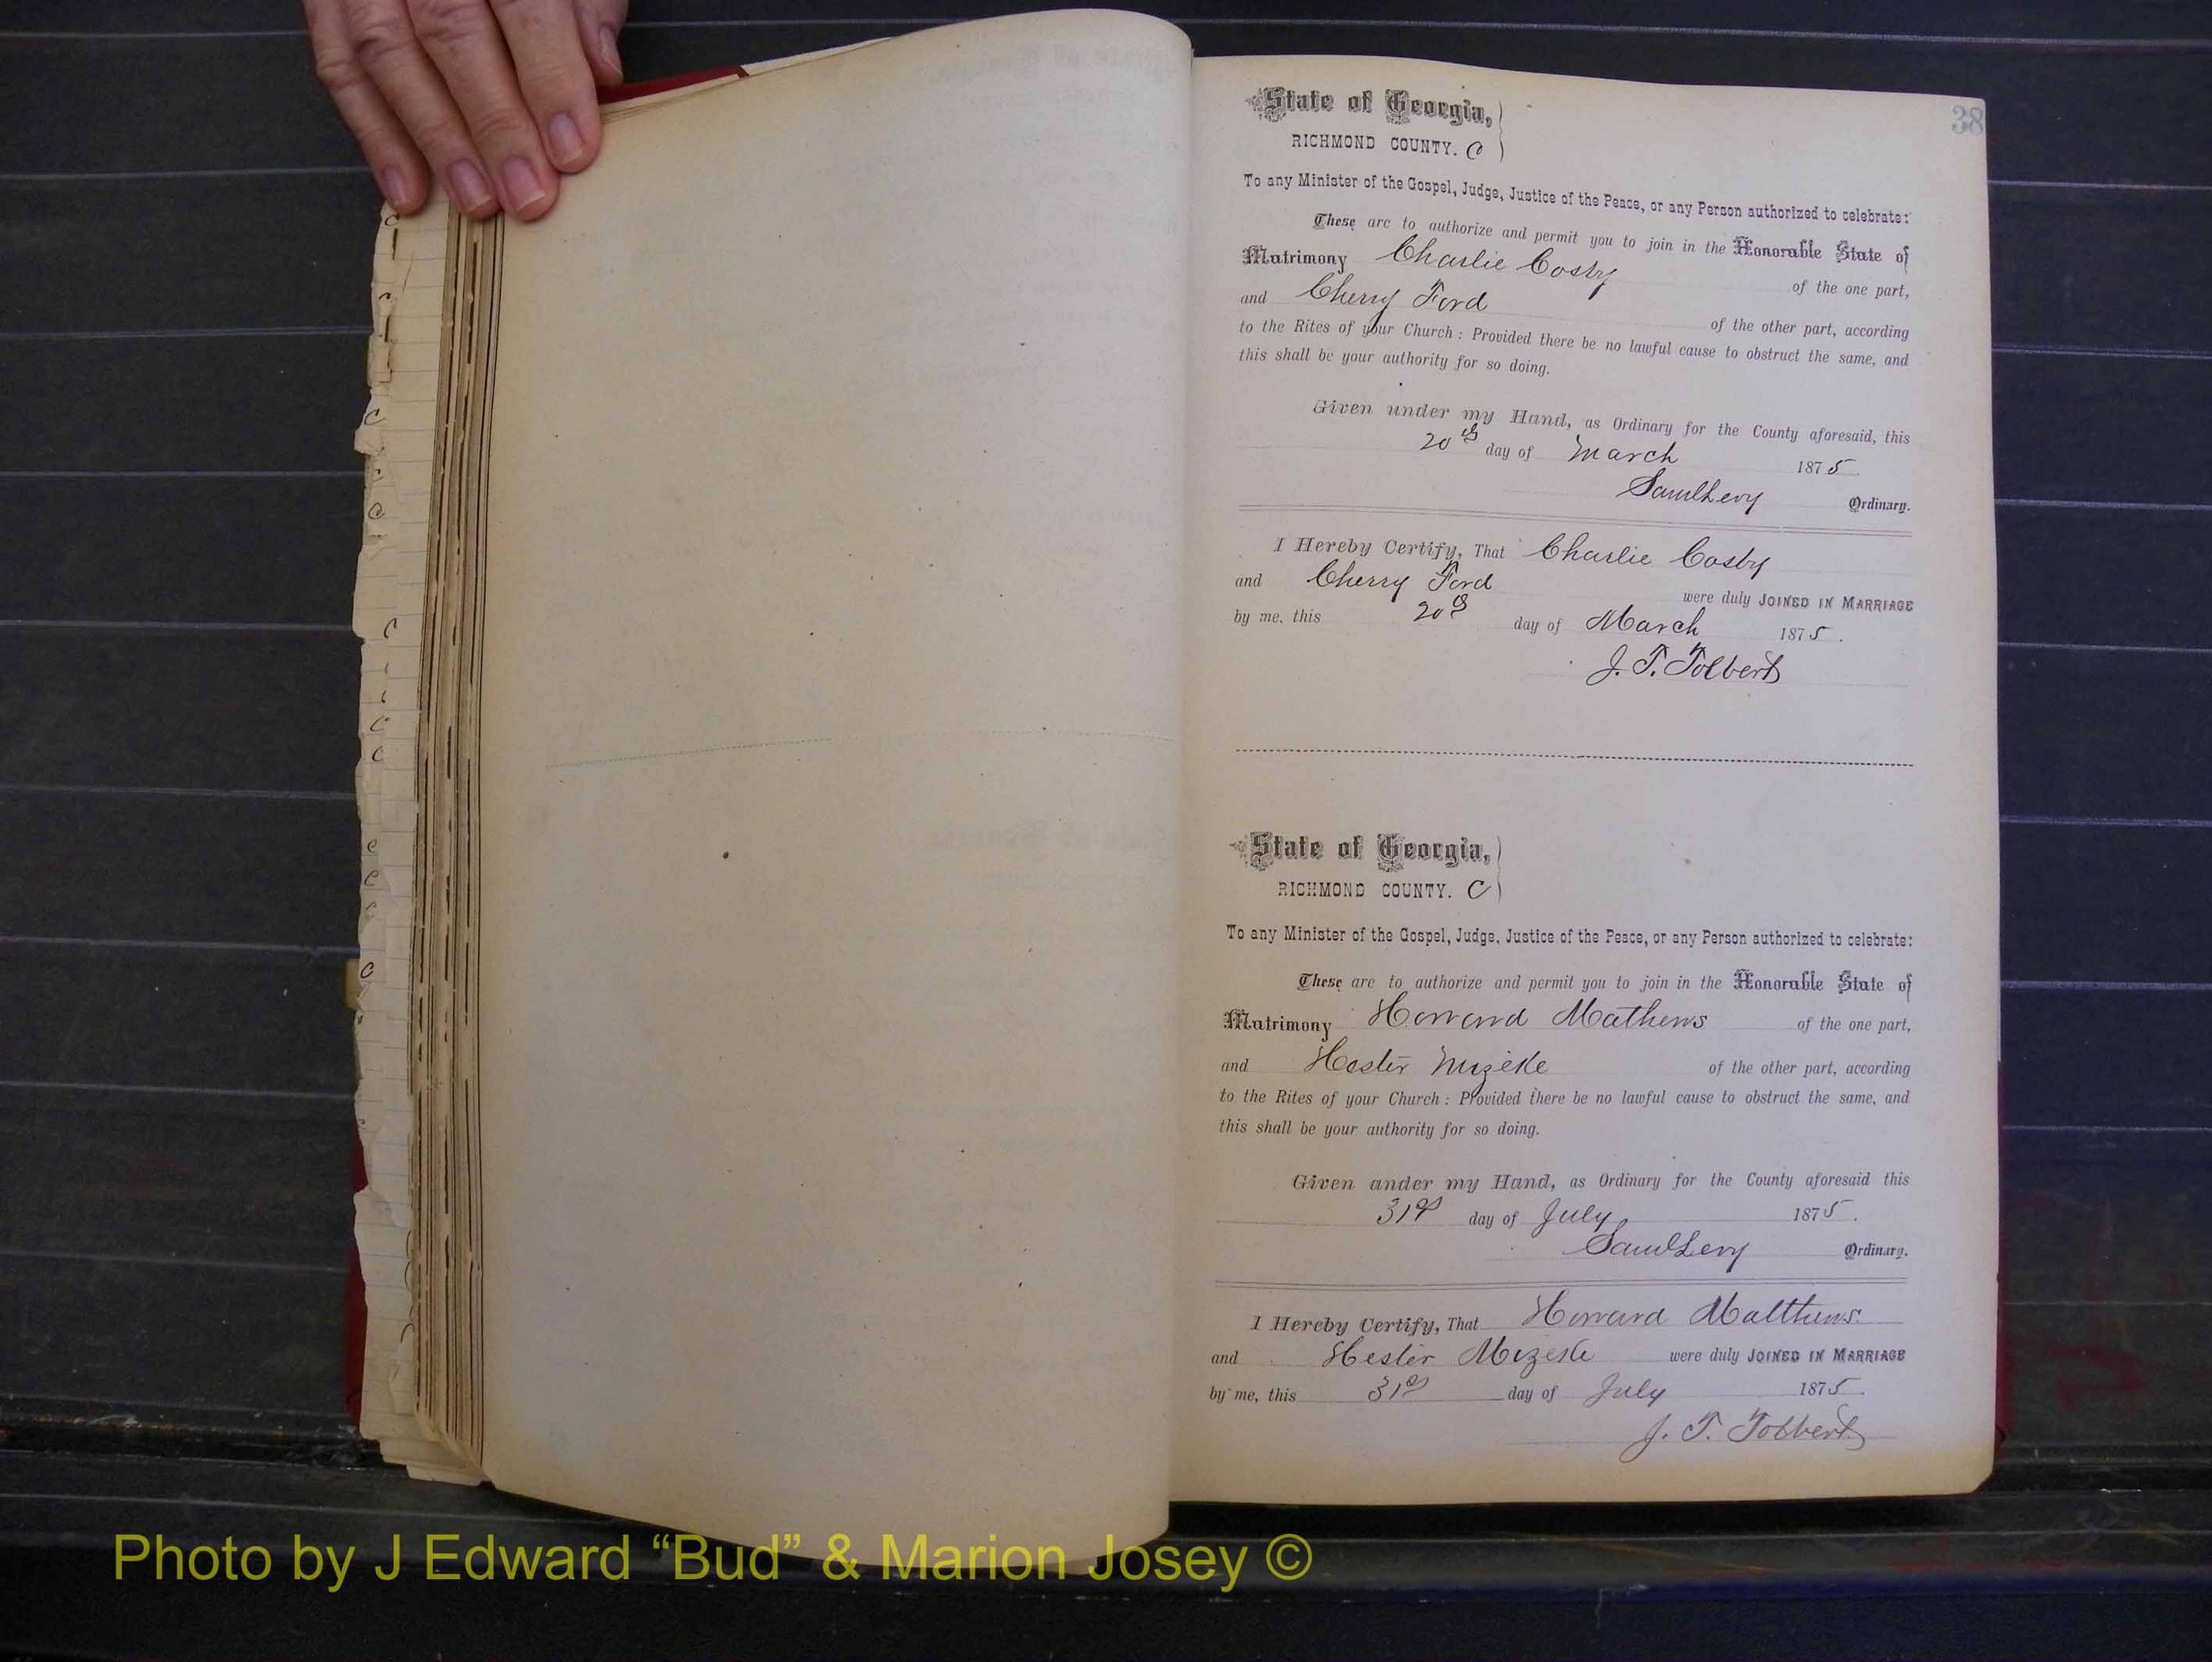 38
State of Georgia,
RICHMOND COUNTY. C
To any Minister of the Gospel, Judge, Justice of the Peace, or any Person authorized to celebrate:
These are to authorize and permit you to join in the Honorable State of
Matrimony Charlie Cosby of the one part,
and Cherry Ford of the other part, according
to the Rites of your Church: Provided there be no lawful cause to obstruct the same, and
this shall be your authority for so doing.
Given under my Hand, as Ordinary for the County aforesaid, this
20th day of March 1875
Saml Levy Ordinary.
I Hereby Certify, That Charlie Cosby
and Cherry Ford were duly JOINED IN MARRIAGE
by me, this 20th day of March 1875.
J. T. Tolbert
State of Georgia,
RICHMOND COUNTY. C
To any Minister of the Gospel, Judge, Justice of the Peace, or any Person authorized to celebrate:
These are to authorize and permit you to join in the Honorable State of
Matrimony Howard Mathews of the one part,
and Hester Mizelle of the other part, according
to the Rites of your Church: Provided there be no lawful cause to obstruct the same, and
this shall be your authority for so doing.
Given under my Hand, as Ordinary for the County aforesaid this
31st day of July 1875.
Saml Levy Ordinary.
I Hereby Certify, That Howard Matthews
and Hester Mizelle were duly JOINED IN MARRIAGE
by me, this 31st day of July 1875.
J. T. Tolbert
Photo by J Edward “Bud” & Marion Josey ©